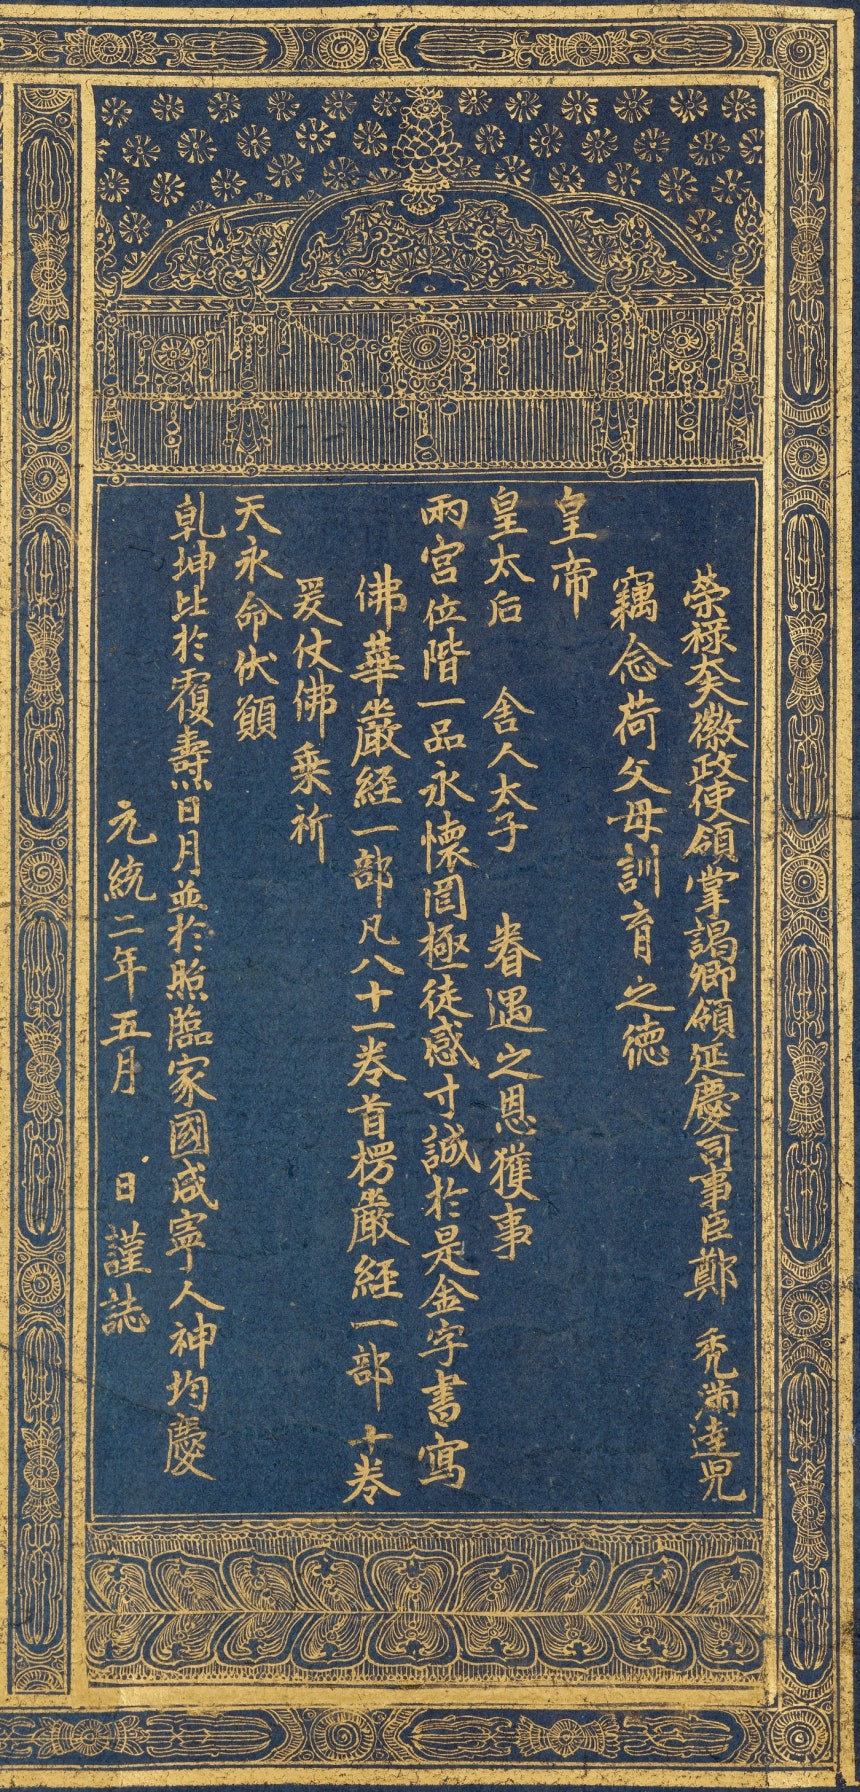 榮祿大夫徽政使領掌謁卿領延慶司事臣鄭 禿滿達兒
竊念荷父母訓育之德
皇帝
皇太后 舍人太子 眷遇之恩獲事
兩宮位階一品永懷罔極徒感寸誠於是金字書寫
佛華嚴経一部凡八十一卷首楞嚴経一部十卷
爰仗佛乗祈
天永命伏願
乾坤比於覆燾日月並於照臨家國咸寧人神均慶
元統二年五月 日謹誌